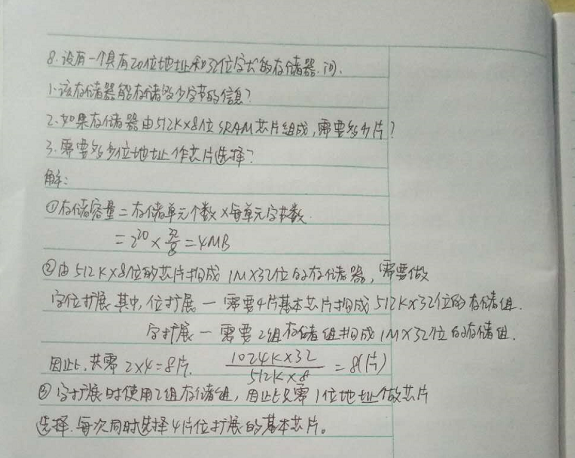 8.设有一个具有20位地址和32位字长的存储器.问.
1.该存储器能存储多少字节的信息?
2.如果存储器由512K×8位SRAM芯片组成,需要多少片?
3.需要多少位地址作芯片选择?
解:
①存储容量=存储单元个数×每单元字节数.
=2^20×32/8=4MB
②由512K×8位的芯片构成1M×32位的存储器,需要做
字位扩展.其中,位扩展—需要4片基本芯片构成512K×32位的存储组.
字扩展—需要2组存储组构成1M×32位的存储组.
因此,共需2×4=8片. 1024K×32/512K×8=8(片)
③字扩展时使用2组存储组,因此只需1位地址做芯片
选择.每次同时选择4片位扩展的基本芯片。